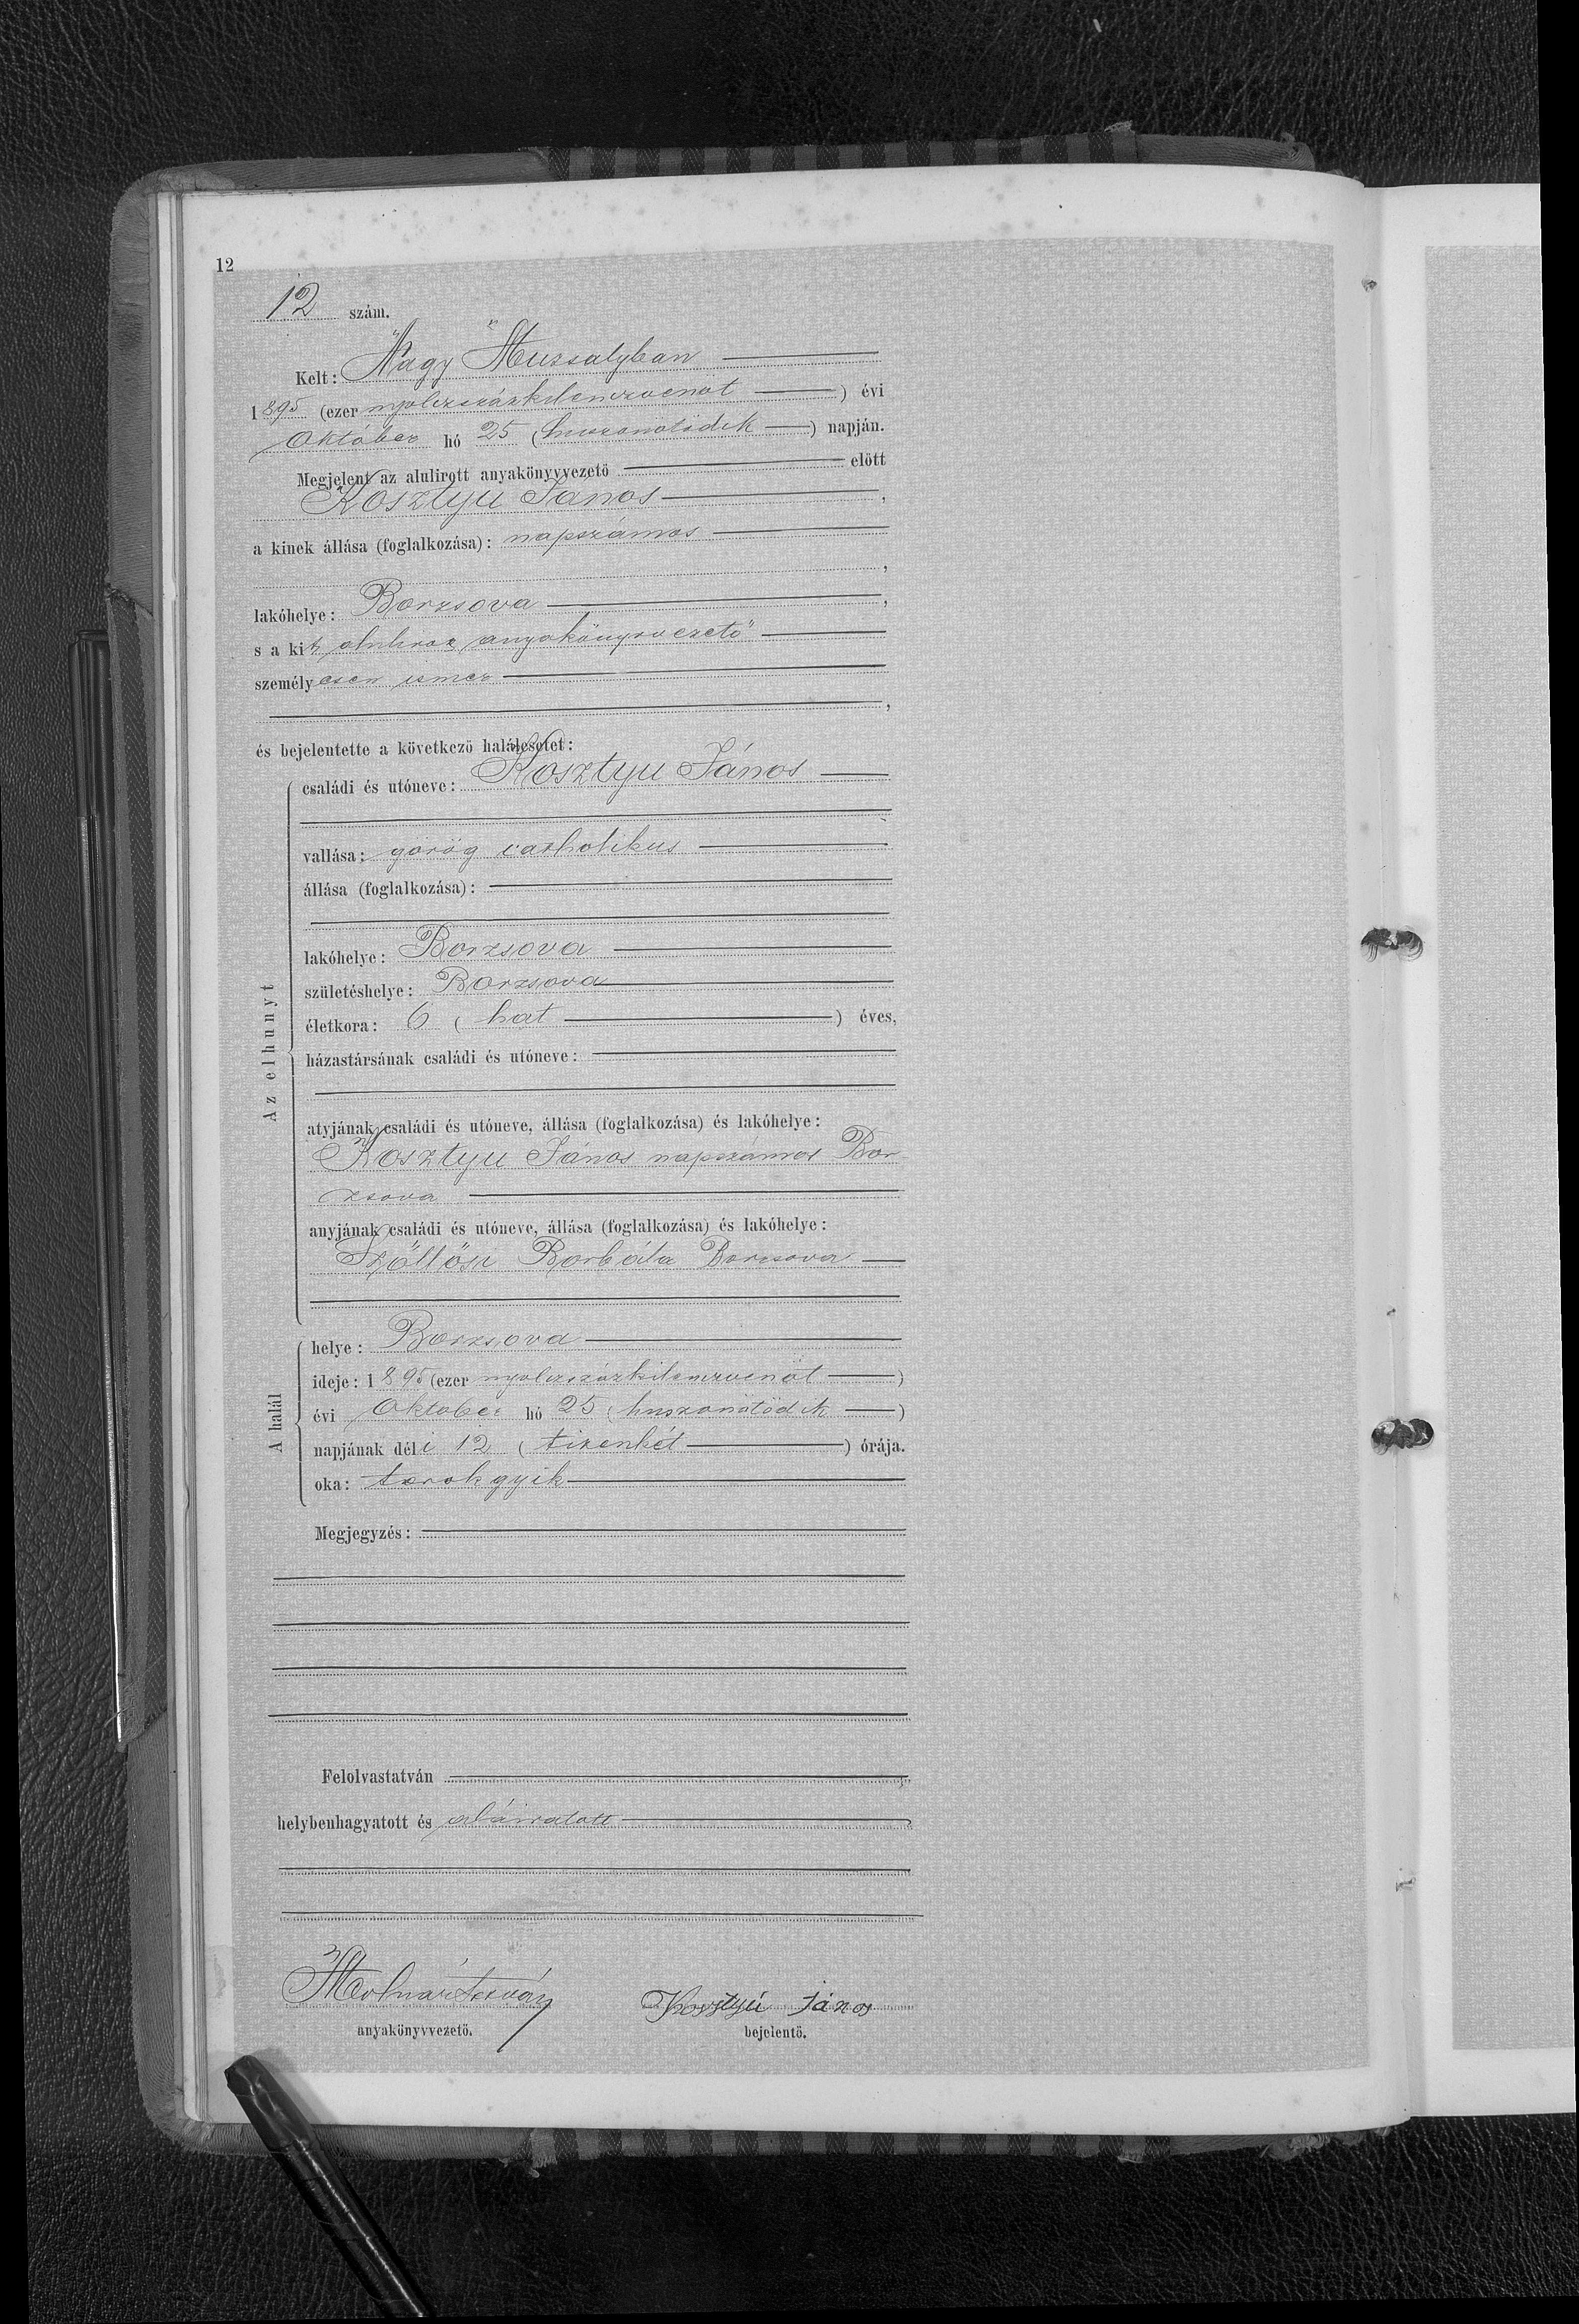 12
12 szám.
Kelt: Nagy Muzsalyban
1895 (ezer nyolczszázkilenczvenöt) évi
Október hó 25 (huszonötödik) napján.
Megjelent az alulirott anyakönyvvezető előtt
Kosztyu János,
a kinek állása (foglalkozása): napszámos
,
lakóhelye: Borzsova,
s a kit alulirott anyakönyvvezető
személyesen ismer
,
és bejelentette a következő halálesetet:
Az elhunyt
családi és utóneve: Kosztyu János
vallása: görög catholikus
állása (foglalkozása):
lakóhelye: Borzsova
születéshelye: Borzsova
életkora: 6 (hat) éves,
házastársának családi és utóneve:
atyjának családi és utóneve, állása (foglalkozása) és lakóhelye:
Kosztyu János napszámos Bor
zsova
anyjának családi és utóneve, állása (foglalkozása) és lakóhelye:
Szöllősi Borbála Borzsova
A halál
helye: Borzsova
ideje: 1895 (ezer nyolczszázkilenczvenöt)
évi Október hó 25 (huszonötödik)
napjának déli 12 (tizenkét) órája.
oka: torokgyik
Megjegyzés:
Felolvastatván
helybenhagyatott és aláiratott
Molnár István Kosztyú János
anyakönyvvezető. bejelentő.